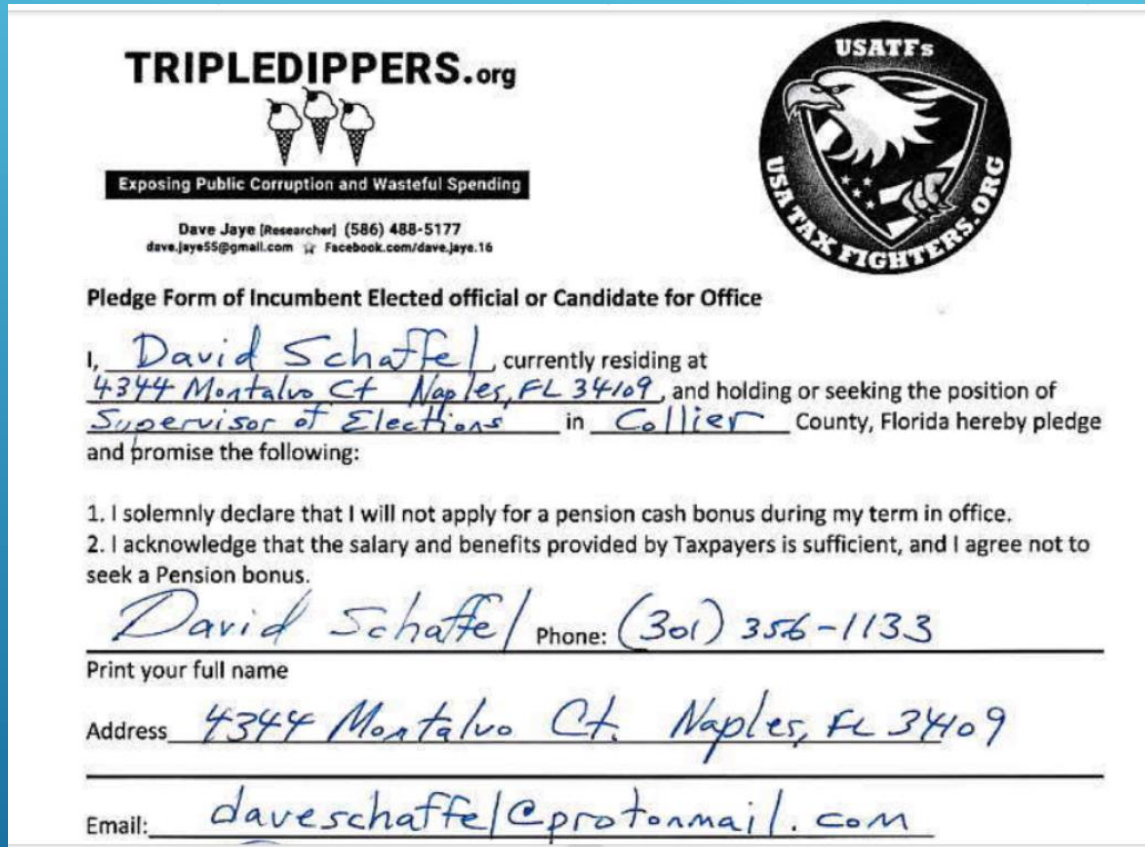 TRIPLEDIPPERS.org
Exposing Public Corruption and Wasteful Spending
Dave Jaye [Researcher] (586) 488-5177
dave.jaye55@gmail.com ☆ Facebook.com/dave.jaye.16
USATFs
USA TAX FIGHTERS.ORG
Pledge Form of Incumbent Elected official or Candidate for Office
I, David Schaffel, currently residing at
4344 Montalvo Ct Naples, FL 34109, and holding or seeking the position of
Supervisor of Elections in Collier County, Florida hereby pledge
and promise the following:
1. I solemnly declare that I will not apply for a pension cash bonus during my term in office.
2. I acknowledge that the salary and benefits provided by Taxpayers is sufficient, and I agree not to
seek a Pension bonus.
David Schaffel Phone: (301) 356-1133
Print your full name
Address 4344 Montalvo Ct. Naples, FL 34109
Email: daveschaffel@protonmail.com